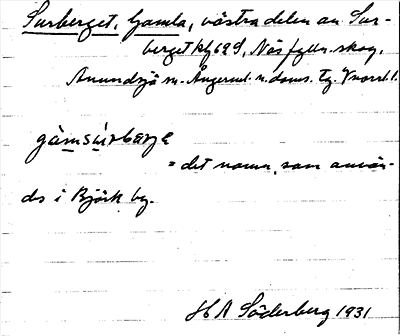 Surberget, Gamla, västra delen av Sur-
berget kfg 629, Näsfylln. skog,
Anundsjö sn. Ångerml. n. doms. tg. Vnorrl. l.
gàmsúrbærje
= det namn, som använ-
des i Björk by.
H A Söderberg 1931